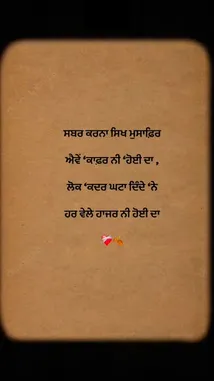 ਸਬਰ ਕਰਨਾ ਸਿਖ ਮੁਸਾਫ਼ਿਰ
ਐਵੇਂ ‘ਕਾਫ਼ਰ ਨੀ ‘ਹੋਈ ਦਾ ,
ਲੋਕ ‘ਕਦਰ ਘਟਾ ਦਿੰਦੇ ‘ਨੇ
ਹਰ ਵੇਲੇ ਹਾਜਰ ਨੀ ਹੋਈ ਦਾ